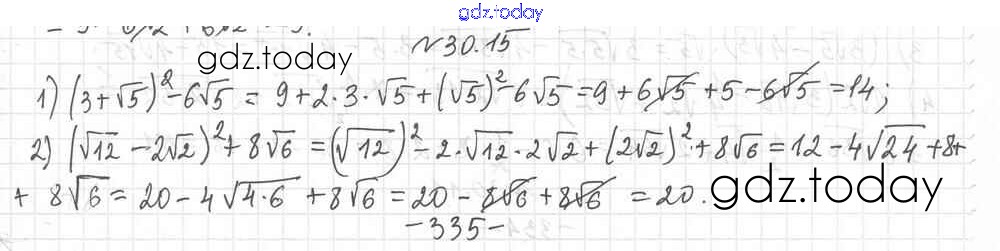 gdz.today
№30.15
gdz.today
1) (3+√5)²-6√5 = 9+2·3·√5+(√5)²-6√5=9+6√5+5-6√5=14;
2) (√12-2√2)²+8√6=(√12)²-2·√12·2√2+(2√2)²+8√6=12-4√24+8+
+ 8√6=20-4√4·6+8√6=20-8√6+8√6=20.
gdz.today
-335-